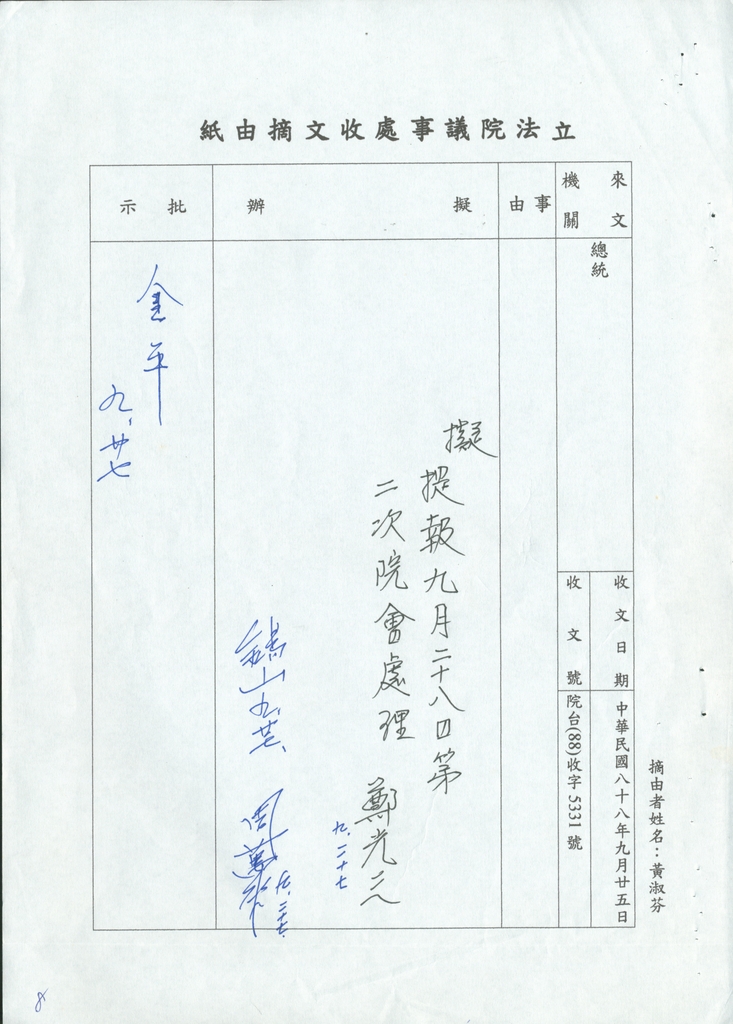 立法院議事處收文摘由紙
來文機關
總統
收文日期
中華民國八十八年九月廿五日
收文號
院台(88)收字5331號
事由
擬辦
擬
提報九月二十八日第
二次院會處理
鄭光三
九.二十七
批示
金平
九.廿七
摘由者姓名：黃淑芬
8